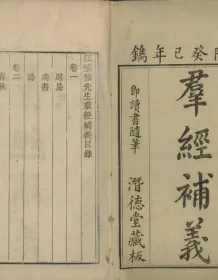 癸巳年鐫
羣經補義
即讀書隨筆
潛德堂藏板
江慎修先生羣經補義目錄
卷一
周易
尚書
詩
卷二
春秋